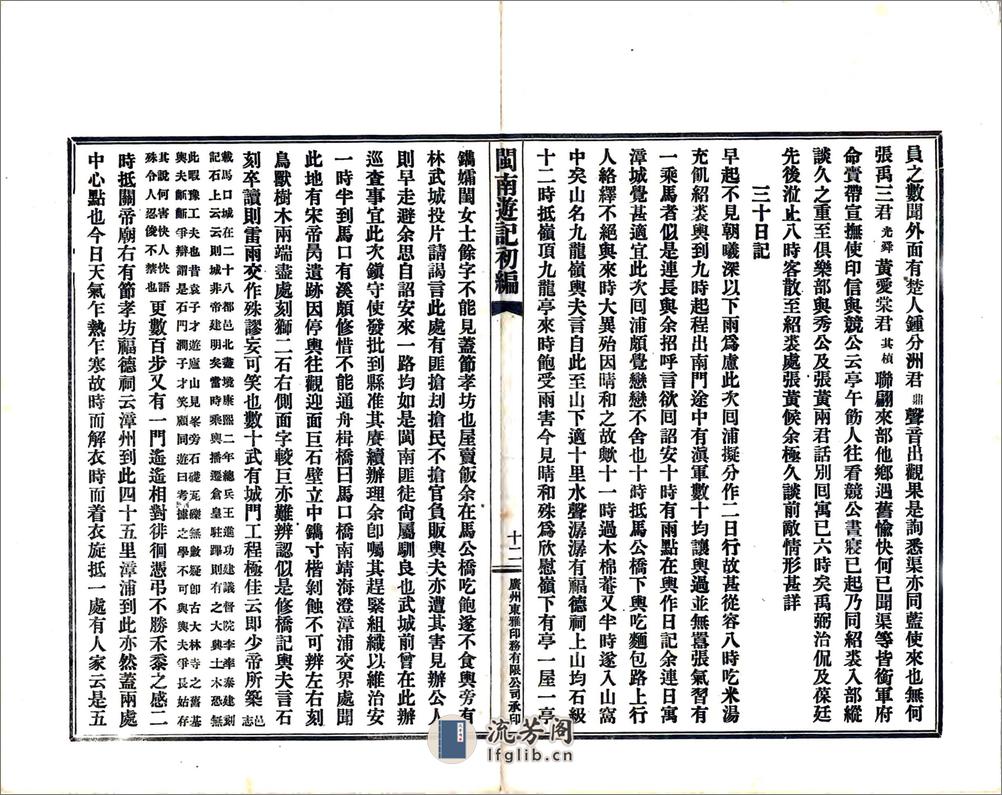 員之數聞外面有楚人鍾分洲君鼎聲音出觀果是詢悉渠亦同藍使來也無何
張禹三君光舜黃愛棠君其楨聯翩來部他鄉遇舊愉快何已聞渠等皆銜軍府
命賣帶宣撫使印信與競公云亭午筋人往看競公晝寢已起乃同紹裘入部縱
談久之重至俱樂部與秀公及張黃兩君話別囘寓已六時矣禹弼治侃及葆廷
先後涖止八時客散至紹裘處張黃候余極久談前敵情形甚詳
三十日記
早起不見朝曦深以下雨爲慮此次囘浦擬分作二日行故甚從容八時吃米湯
充飢紹裘輿到九時起程出南門途中有滇軍數十均讓輿過並無囂張氣習有
一乘馬者似是連長與余招呼言欲囘詔安十時有雨點在輿作日記余連日寓
漳城覺甚適宜此次囘浦頗覺戀戀不舍也十時抵馬公橋下輿吃麵包路上行
人絡繹不絕與來時大異殆因晴和之故歟十一時過木棉菴又半時遂入山窩
中矣山名九龍嶺輿夫言自此至山下適十里水聲潺潺有福德祠上山均石級
十二時抵嶺頂九龍亭來時飽受雨害今見晴和殊爲欣慰嶺下有亭一屋一亭
閩南遊記初編
十二
廣州東雅印務有限公司承印
鐫孀閨女士餘字不能見蓋節孝坊也屋賣飯余在馬公橋吃飽遂不食輿旁有
林武城投片請謁言此處有匪搶刦搶民不搶官負販輿夫亦遭其害見辦公人
則早走避余思自詔安來一路均如是閩南匪徒尙屬馴良也武城前曾在此辦
巡查事宜此次鎭守使發批到縣准其賡續辦理余卽囑其趕緊組織以維治安
一時半到馬口有溪頗修惜不能通舟楫橋曰馬口橋南靖海澄漳浦交界處聞
此地有宋帝昺遺跡因停輿往觀迎面巨石壁立中鐫寸楷剝蝕不可辨左右刻
鳥獸樹木兩端盡處刻獅二石右側面字較巨亦難辨認似是修橋記輿夫言石
刻卒讀則雷雨交作殊謬妄可笑也數十武有城門工程極佳云即少帝所築邑志
載馬口城在二十八都邑北盡境康熙二年總兵王進功建議督院李率泰建刻
記石上云云則城非帝建明矣當時乘輿播遷倉皇駐蹕則有之大興土木恐無
此暇豫工夫也昔袁子才遊廬山見峯旁石磴瓦礫無數疑卽古大林寺之舊基
輿夫齗齗爭辯謂是石門澗子才笑顧同遊曰考據之學不可與輿夫爭長始存
其說何害人快語
殊令人忍俊不禁也
更數百步又有一門遙遙相對徘徊憑弔不勝禾黍之感二
時抵關帝廟右有節孝坊福德祠云漳州到此四十五里漳浦到此亦然蓋兩處
中心點也今日天氣乍熱乍寒故時而解衣時而着衣旋抵一處有人家云是五
流芳阁
lfglib.cn